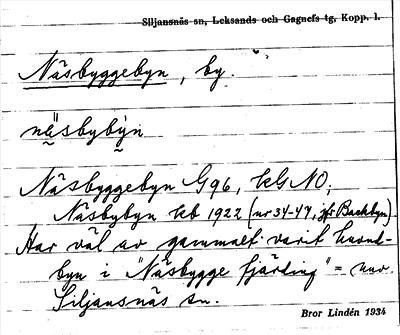 Siljansnäs sn, Leksands och Gagnefs tg, Kopp. l.
Näsbyggebyn, by.
näsbybyn
Näsbyggebyn G96, kGNO;
Näsbybyn kb 1922 (nr 34-47, jfr Backbyn).
Har väl av gammalt varit huvud-
byn i "Näsbygge fjärding" = nuv.
Siljansnäs sn.
Bror Lindén 1934